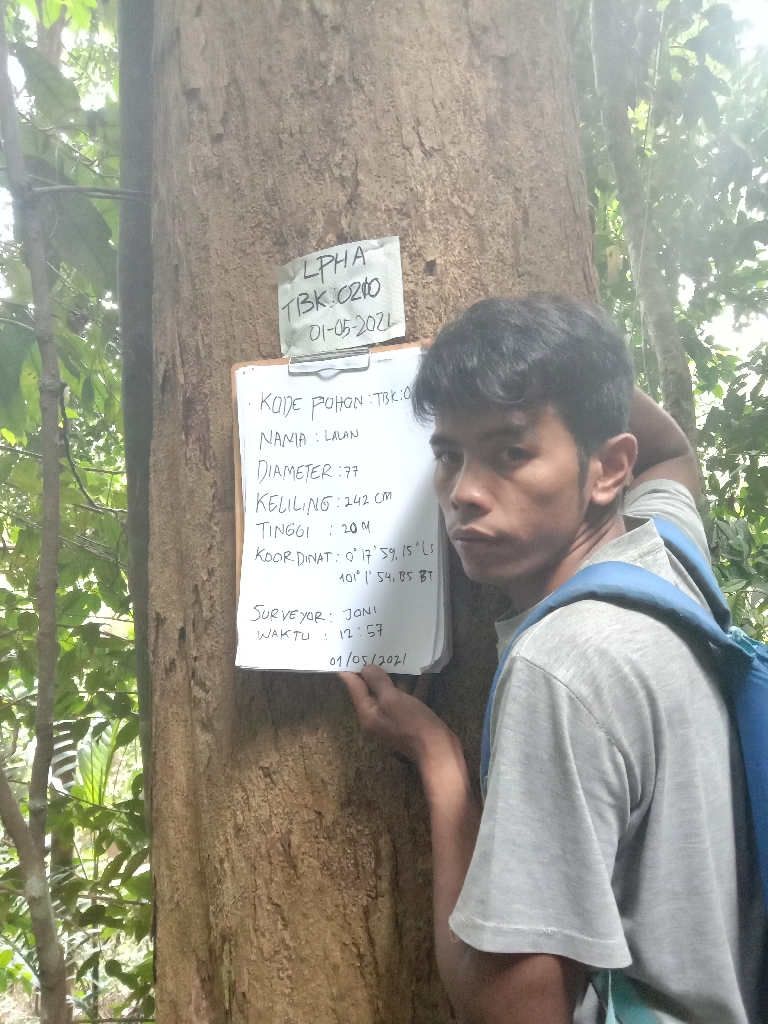 LPHA
TBK:0210
01-05-2021
KODE POHON : TBK:0
NAMA : LALAN
DIAMETER : 77
KELILING : 242 CM
TINGGI : 20 M
KOORDINAT : 0° 17' 59,15" LS
101° 1' 54,85 BT
SURVEYOR : JONI
WAKTU : 12:57
01/05/2021